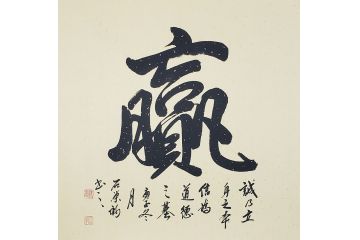 贏
誠乃立
身之本
信為
道德
之基
庚子冬
月